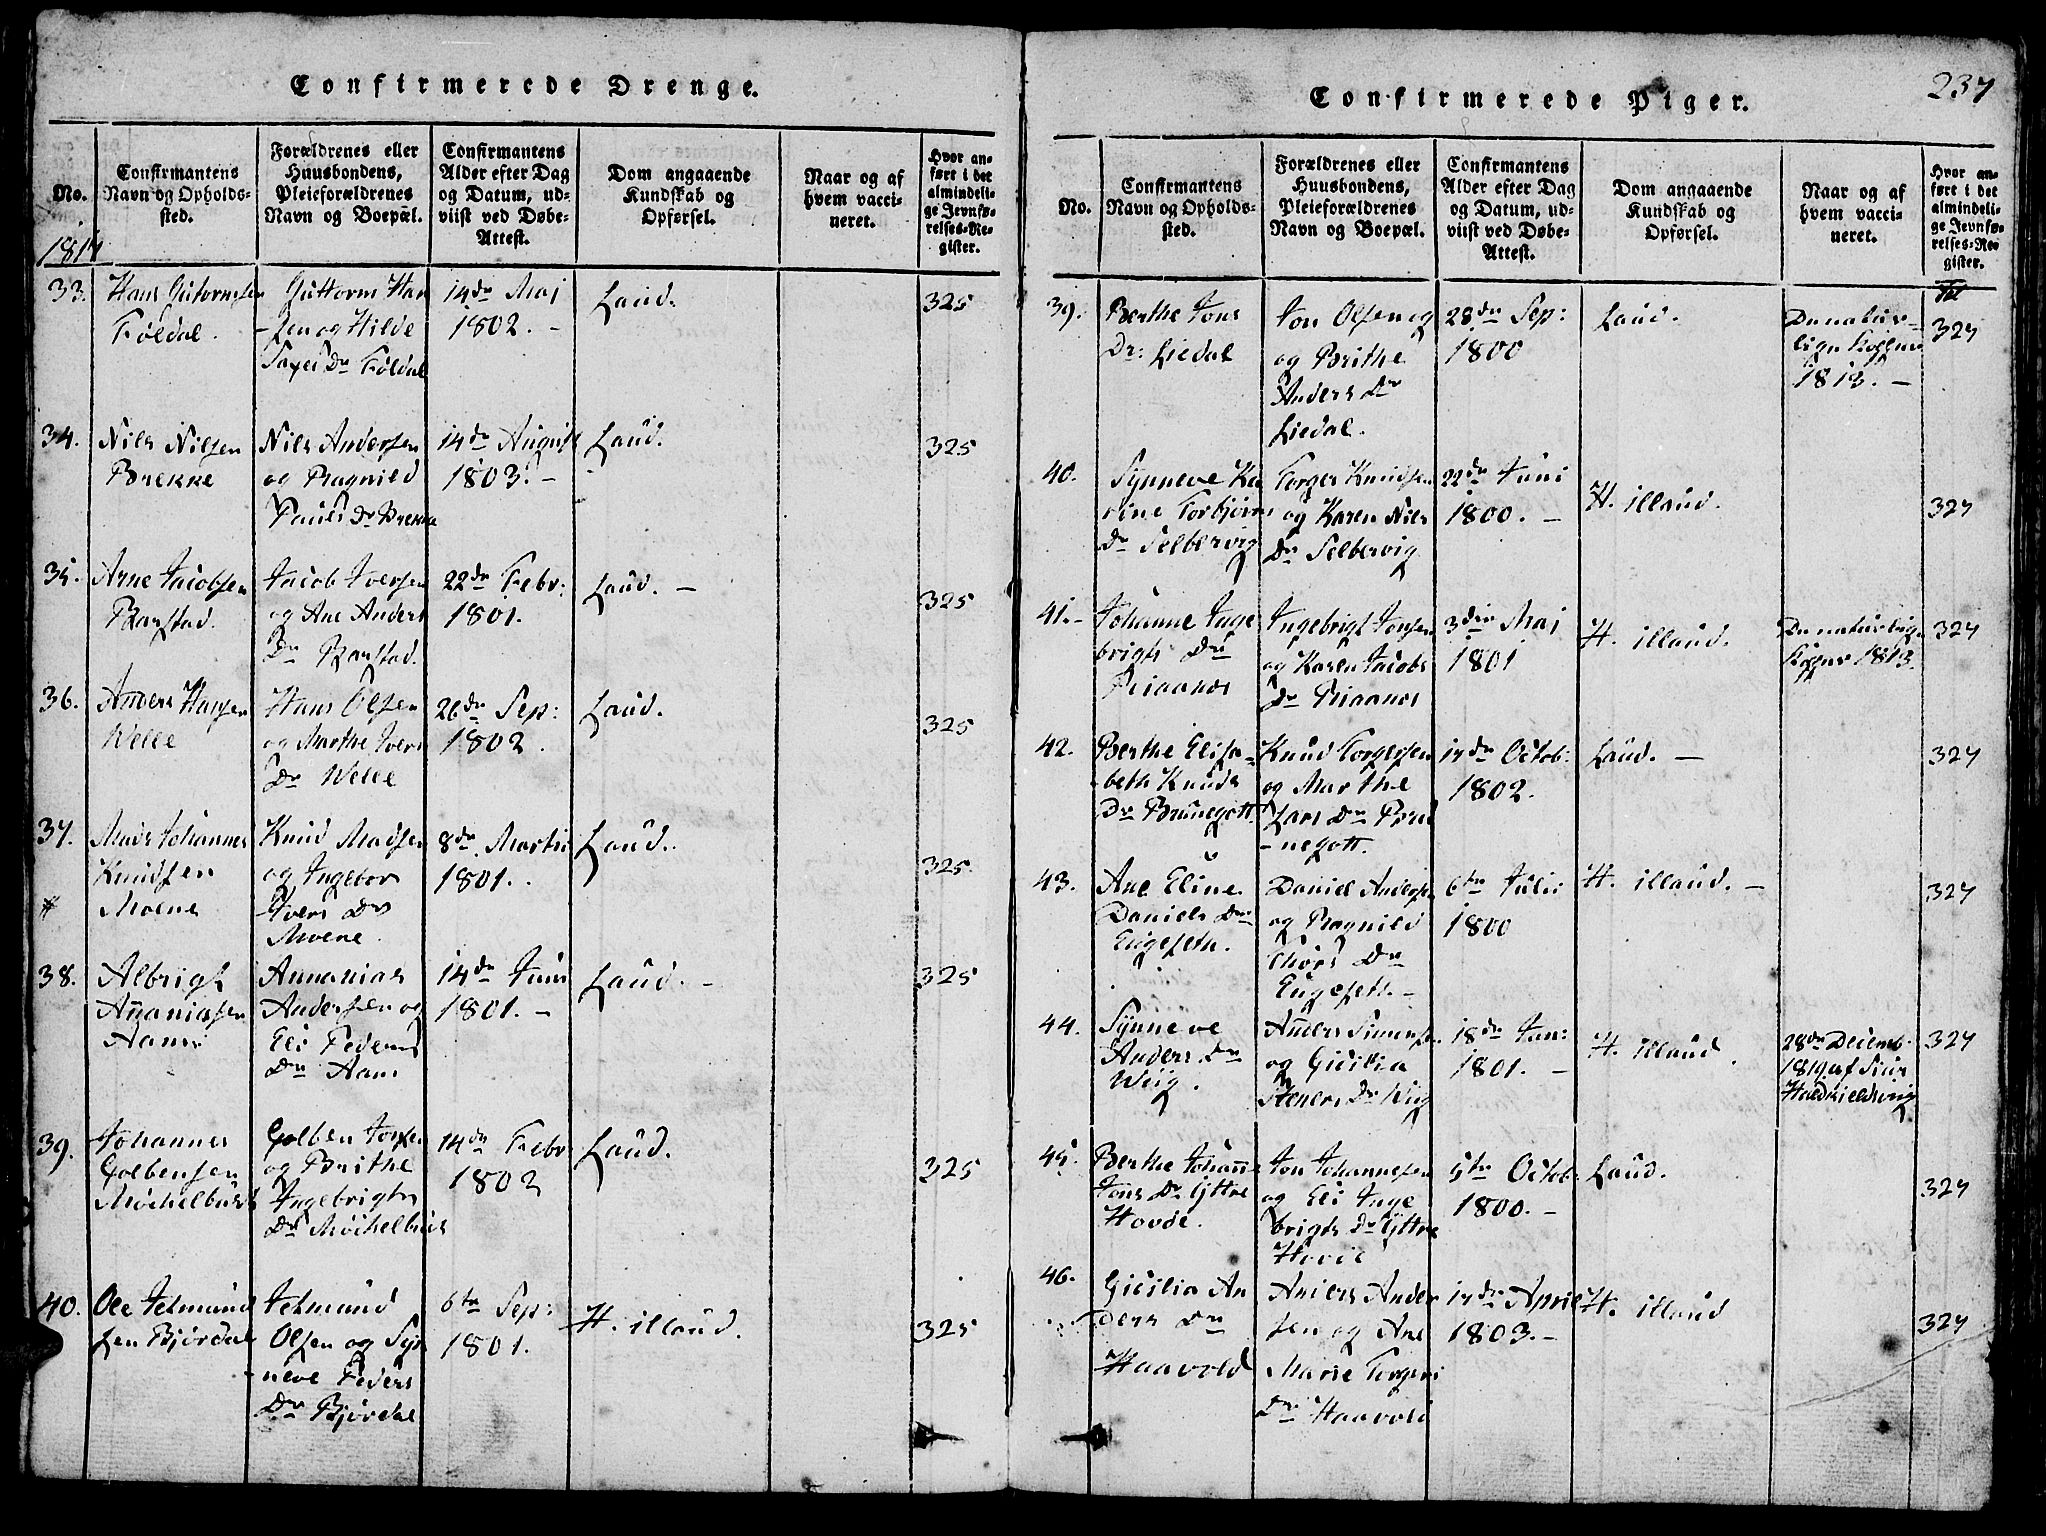 Confirmerede Drenge.
No.
Confirmantens
Navn og Opholds-
sted.
Forældrenes eller
Huusbondens,
Pleieforældrenes
Navn og Boepæl.
Confirmantens
Alder efter Dag
og Datum, ud-
viist ved Døbe-
Attest.
Dom angaaende
Kundskab og
Opførsel.
Naar og af
hvem vacci-
neret.
Hvor an-
ført i det
almindeli-
ge Jevnfø-
relses-Re-
gister.
33.
Hans Gutormsen
Føldal.
Guttorm Han
-sen og Hilde
Dr Føldal
14de Maj
1802. -
Laud.
325
34.
Nils Nilsen
Brekke
Nils Andersen
og Ragnild
Pauls Dr Brekke
14de August
1803. -
Laud.
325
35.
Arne Jacobsen
Barstad.
Jacob Iversen
og Ane Anders
Dr Barstad.
22de Febr:
1801.
Laud. -
325
36.
Anders Hansen
Welle
Hans Olsen
og Marthe Ivers
Dr Welle
26de Sep:
1802.
Laud.
325
37.
Mads Johannes
Knudsen
Moene
Knud Madsen
og Ingebor
Ivers Dr
Moene.
8de Martii
1801.
Laud.
325.
38.
Albrigt
Ananiasen
Aam
Annanias
Andersen og
Eli Peders
Dr Aam
14de Juni
1801. -
Laud. -
325
39.
Johannes
Golbensen
Møchelbust
Golben Jonsen
og Brithe
Ingebrigts
Dr Møchelbust
14de Febr
1802
Laud.
325
40.
Ole Jetmund
sen Bjørdal
Jetmund
Olsen og Syn
-neve Peders
Dr Bjørdal
6te Sep:
1801.
H. illaud.
325
Confirmerede Piger.
237
No.
Confirmantens
Navn og Opholds-
sted.
Forældrenes eller
Huusbondens,
Pleieforældrenes
Navn og Boepæl.
Confirmantens
Alder efter Dag
og Datum, ud-
viist ved Døbe-
Attest.
Dom angaaende
Kundskab og
Opførsel.
Naar og af
hvem vacci-
neret.
Hvor an-
ført i det
almindeli-
ge Jevnfø-
relses-Re-
gister.
39.
Berthe Jons
Dr: Liedal
Jon Olsen og
og Brithe
Anders Dr
Liedal.
28de Sep:
1800
Laud.
De natur-
lige Kopper
1813. -
327
40.
Synneve Ka
rine Torbjørns
Dr Selbervig
Torger Knudsen
og Karen Nils
Dr Selbervig
22de Juni
1800. -
H. illaud.
327
41. -
Johanne Inge
brigts Dr
Riaanes
Ingebrigt Jonsen
og Karen Jacobs
Dr Riaanes
3die Maj
1801
H. illaud.
De naturlige
Kopper 1813.
327
42.
Berthe Elisa-
beth Knuds
Dr Brunegott
Knud Torgersen
og Marthe
Lars Dr Bru
-negott.
17de Octob:
1802.
Laud. -
327
43.
Ane Eline
Daniels Dr
Engeseth.
Daniel Andersen
og Ragnild
Thors Dr
Engeseth. -
6te Julii
1800
H. illaud. -
327
44.
Synneve
Anders Dr
Wiig.
Anders Simens.
og Gicilia
Steners Dr Wiig
18de Jan:
1801. -
H. illaud.
28de Decemb.
1819 af Siur
Haldkieldsvig.
327
45.
Berthe Johanne
Jons Dr Yttre
Hovde.
Jon Johannesen
og Eli Inge
brigts Dr Yttre
Hovde
5te Octob:
1800. -
Laud.
327
46.
Gicilia An
ders Dr
Haavold
Anders Ander
sen og Ane
Marie Torgers
Dr Haavold
17de April
1803. -
H. illaud
327